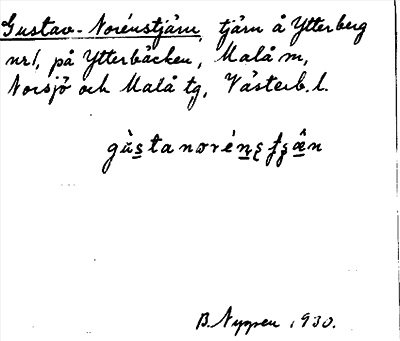 Gustav-Norénstjärn, tjärn å Ytterberg
nr1, på Ytterbäcken, Malå m,
Norsjö och Malå tg, Västerb. l.
B. Nygren 1930.